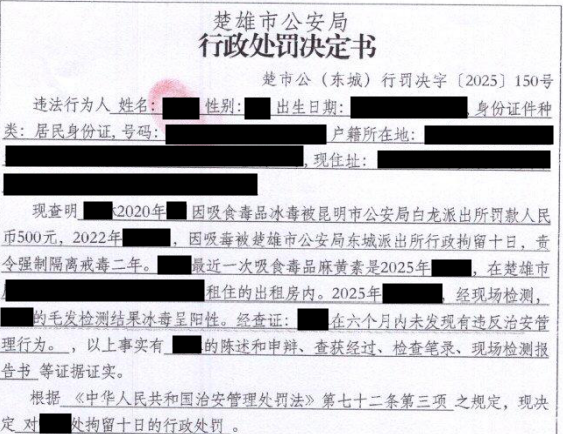 楚雄市公安局
行政处罚决定书
楚市公（东城）行罚决字〔2025〕150号
违法行为人 姓名： 性别： 出生日期： ,身份证件种
类：居民身份证,号码： 户籍所在地：
,现住址：
现查明 2020年 因吸食毒品冰毒被昆明市公安局白龙派出所罚款人民
币500元，2022年 ，因吸毒被楚雄市公安局东城派出所行政拘留十日，责
令强制隔离戒毒二年。 最近一次吸食毒品麻黄素是2025年 ，在楚雄市
租住的出租房内。2025年 ，经现场检测，
的毛发检测结果冰毒呈阳性。经查证： 在六个月内未发现有违反治安管
理行为。，以上事实有 的陈述和申辩、查获经过、检查笔录、现场检测报
告书 等证据证实。
根据 《中华人民共和国治安管理处罚法》第七十二条第三项 之规定，现决
定 对 处拘留十日的行政处罚 。